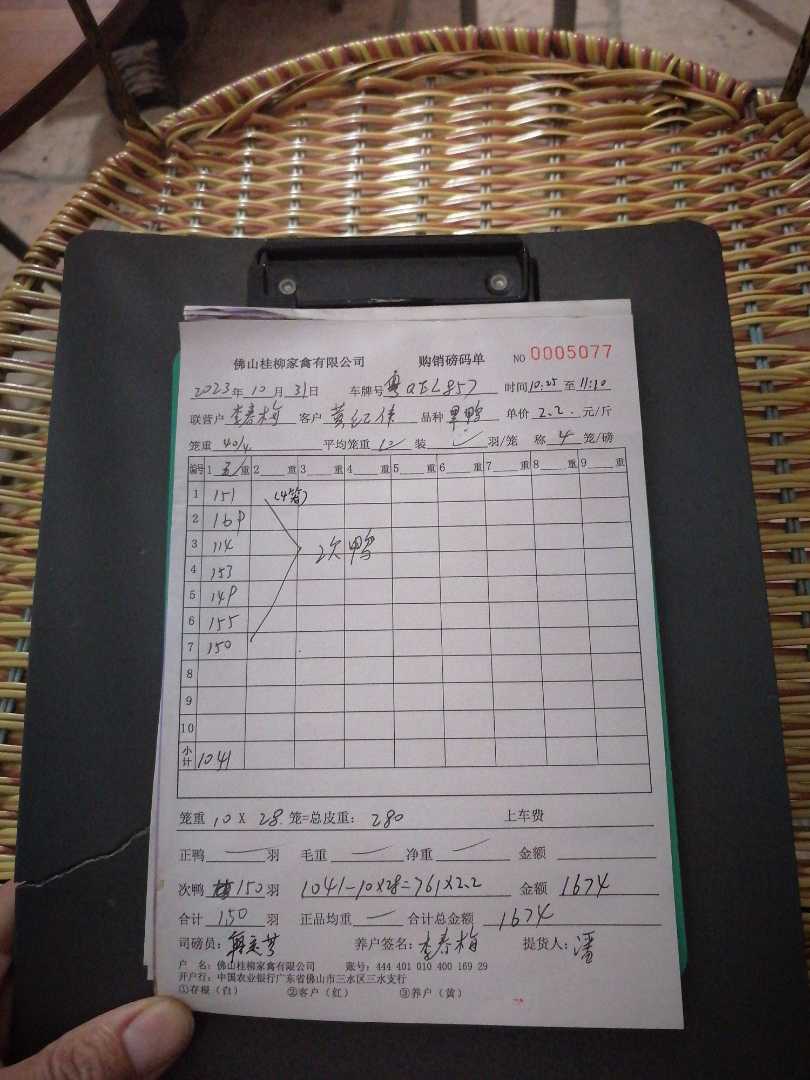 佛山桂柳家禽有限公司 购销磅码单 NO 0005077
2023年10月31日 车牌号 粤QEL857 时间10:25至11:10
联营户 李春梅 客户 黄纪伟 品种 黑鸭 单价 2.2 元/斤
笼重 40/4 平均笼重 10 装 羽/笼 称 4 笼/磅
编号 1 重 2 重 3 重 4 重 5 重 6 重 7 重 8 重 9 重
1 151 (4笼)
2 169
3 114 次鸭
4 153
5 149
6 155
7 150
8
9
10
小计 1041
笼重 10 X 28 笼=总皮重: 280 上车费
正鸭 羽 毛重 净重 金额
次鸭 150 羽 1041-10×28=761×2.2 金额 1674
合计 150 羽 正品均重 合计总金额 1674
司磅员: 养户签名: 李春梅 提货人: 潘
户 名: 佛山桂柳家禽有限公司 账号: 444 401 010 400 169 29
开户行: 中国农业银行广东省佛山市三水区三水支行
①存根(白) ②客户(红) ③养户(黄)